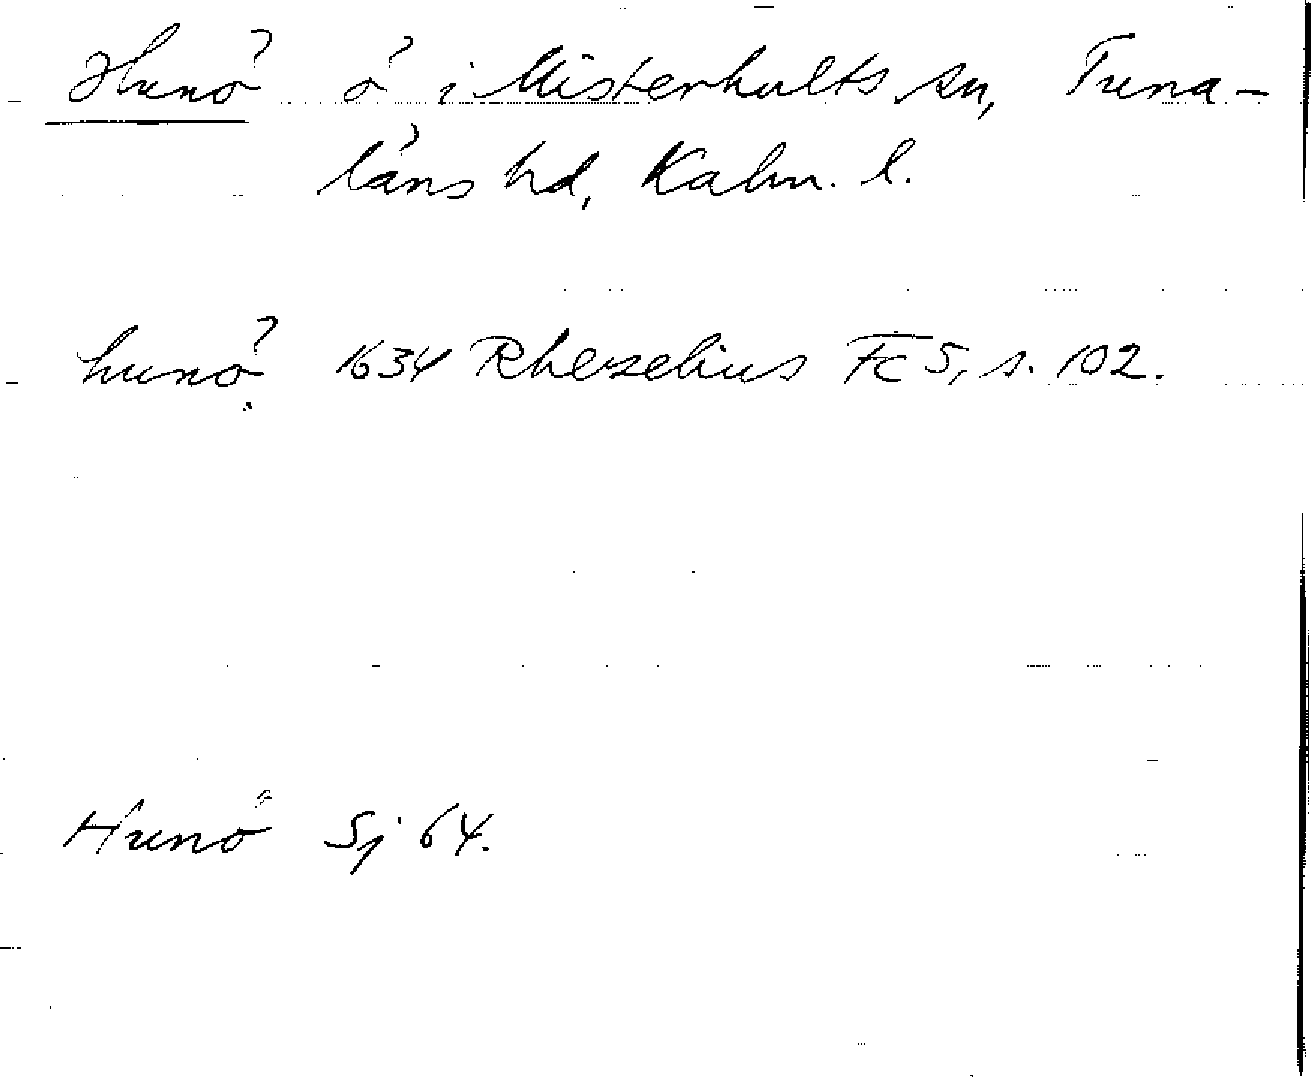 Hunö ö i Misterhults sn, Tuna-
läns hd, Kalm. l.
hunö 1634 Rhezelius Fc 5, s. 102.
Hunö Sj 64.